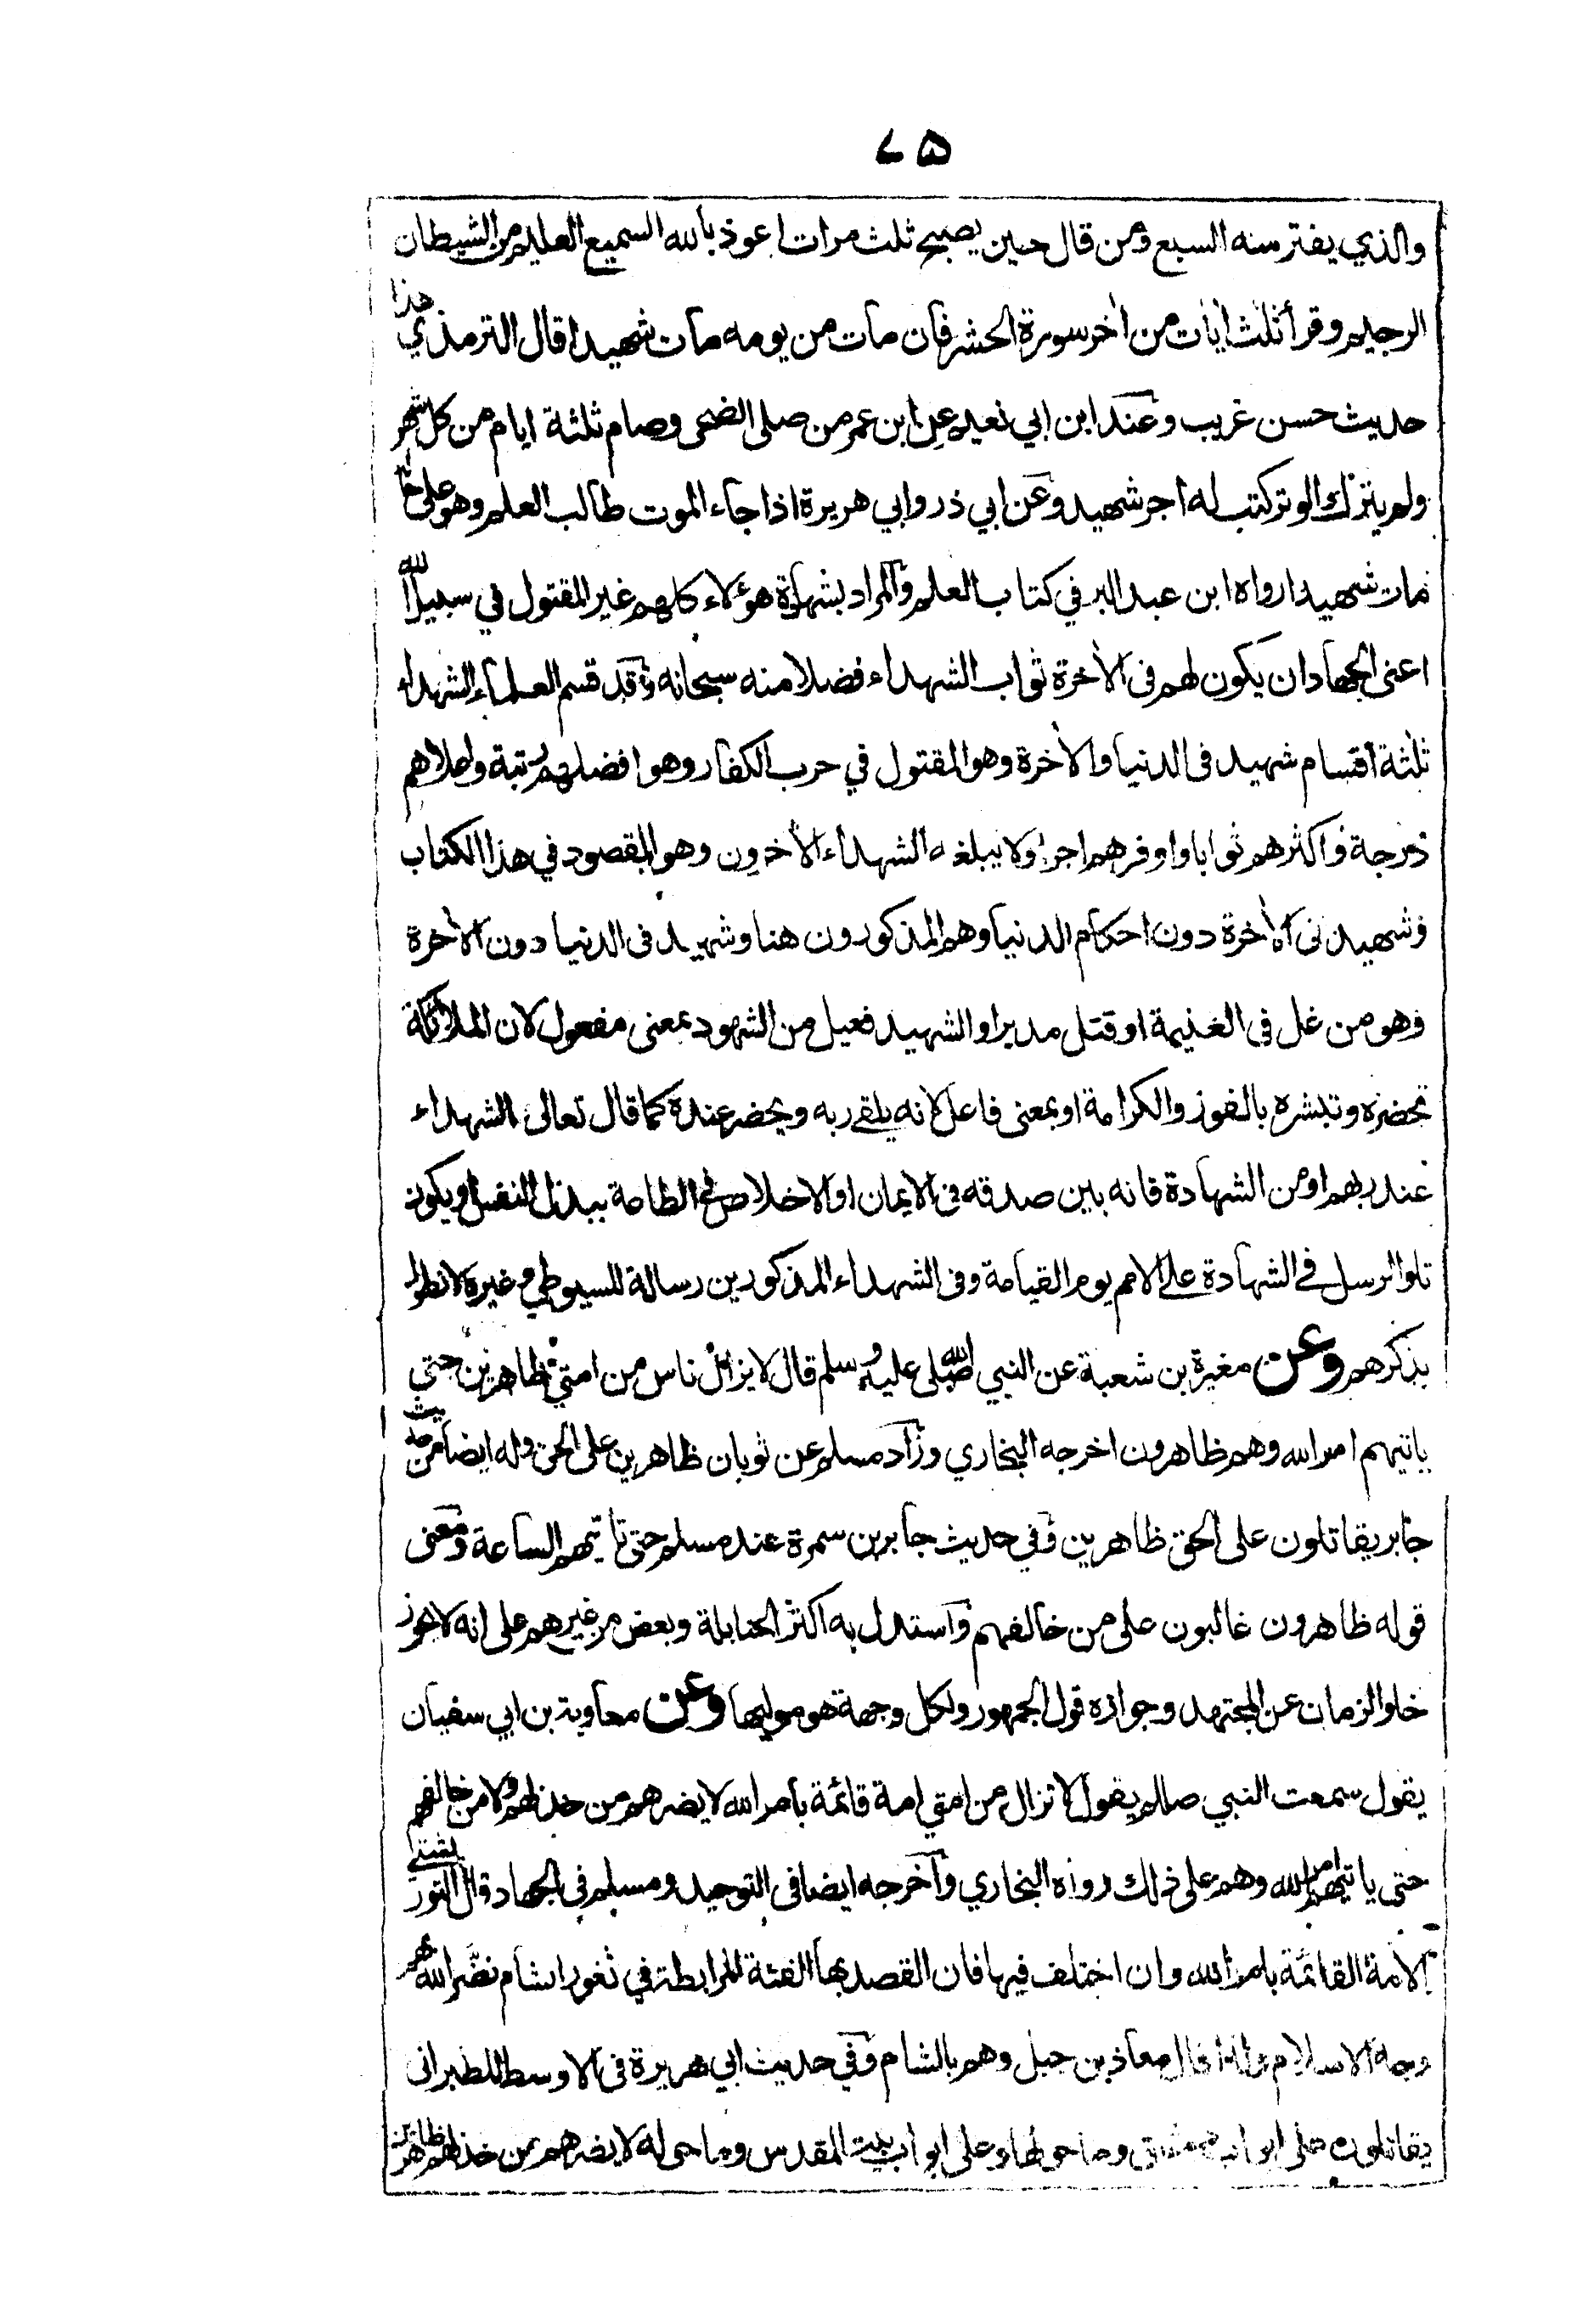 ٧٥
والذي يفترسه السبع ومن قال حين يصبح ثلث مرات اعوذ بالله السميع العليم من الشيطان
الرجيم وقرأ ثلث ايات من اخر سورة الحشر فان مات من يومه مات شهيدا قال الترمذي هذا
حديث حسن غريب وعند ابن ابي نعيم عن ابن عمر من صلى الضحى وصام ثلثة ايام من كل شهر
ولم يترك الوتر كتب له اجر شهيد وعن ابي ذر وابي هريرة اذا جاء الموت طالب العلم وهو على
مات شهيدا رواه ابن عبد البر في كتاب العلم والمراد بشهادة هؤلاء كلهم غير المقتول في سبيل الله
اعنى الجهاد ان يكون لهم فى الأخرة ثواب الشهداء فضلا منه سبحانه وقد قسم العلماء الشهداء
ثلثة اقسام شهيد فى الدنيا والأخرة وهو المقتول في حرب الكفار وهو افضلهم رتبة واعلاهم
درجة واكثرهم ثوابا واوفرهم اجرا ولا يبلغه الشهداء الأخرون وهو المقصود في هذا الكتاب
وشهيد فى الأخرة دون احكام الدنيا وهم المذكورون هنا وشهيد فى الدنيا دون الأخرة
وهو من غل فى الغنيمة او قتل مدبرا والشهيد فعيل من الشهود بمعنى مفعول لان الملائكة
تحضره وتبشره بالفوز والكرامة او بمعنى فاعل لانه يلقے ربه ويحضر عنده كما قال تعالى والشهداء
عند ربهم او من الشهادة فانه بين صدقه فى الايمان او الاخلاص فى الطاعة ببذل النفس او يكون
تلو الرسل فے الشهادة علے الامم يوم القيامة وفى الشهداء المذكورين رسالة للسيوطي وغيره لا نطول
بذكرهم وعن مغيرة بن شعبة عن النبي صلى الله عليه وسلم قال لا يزال ناس من امتي ظاهرين حتي
ياتيهم امر الله وهم ظاهرون اخرجه البخاري وزاد مسلم عن ثوبان ظاهرين على الحق وله ايضا من حديث
جابر يقاتلون على الحق ظاهرين وفي حديث جابر بن سمرة عند مسلم حتى تاتيهم الساعة ومعنى
قوله ظاهرون غالبون على من خالفهم واستدل به اكثر الحنابلة وبعض من غيرهم على انه لا يجوز
خلو الزمان عن المجتهد وجوازه قول الجمهور ولكل وجهة هو موليها وعن معاوية بن ابي سفيان
يقول سمعت النبي صللم يقول لا تزال من امتي امة قائمة بامر الله لا يضرهم من خذلهم ولا من خالفهم
حتى ياتيهم امر الله وهم على ذلك رواه البخاري وآخرجه ايضا فى التوحيد ومسلم فى الجهاد قال التوربشتے
الامة القائمة بامر الله وان اختلف فيها فان القصد بها الفئة المرابطة في ثغور الشام نضر الله بهم
وجه الاسلام ولذا قال معاذ بن جبل وهم بالشام وفي حديث ابي هريرة فى الاوسط للطبرانى
يقاتلون على ابواب دمشق وما حولها وعلى ابواب بيت المقدس وما حوله لا يضرهم من خذلهم ظاهرين